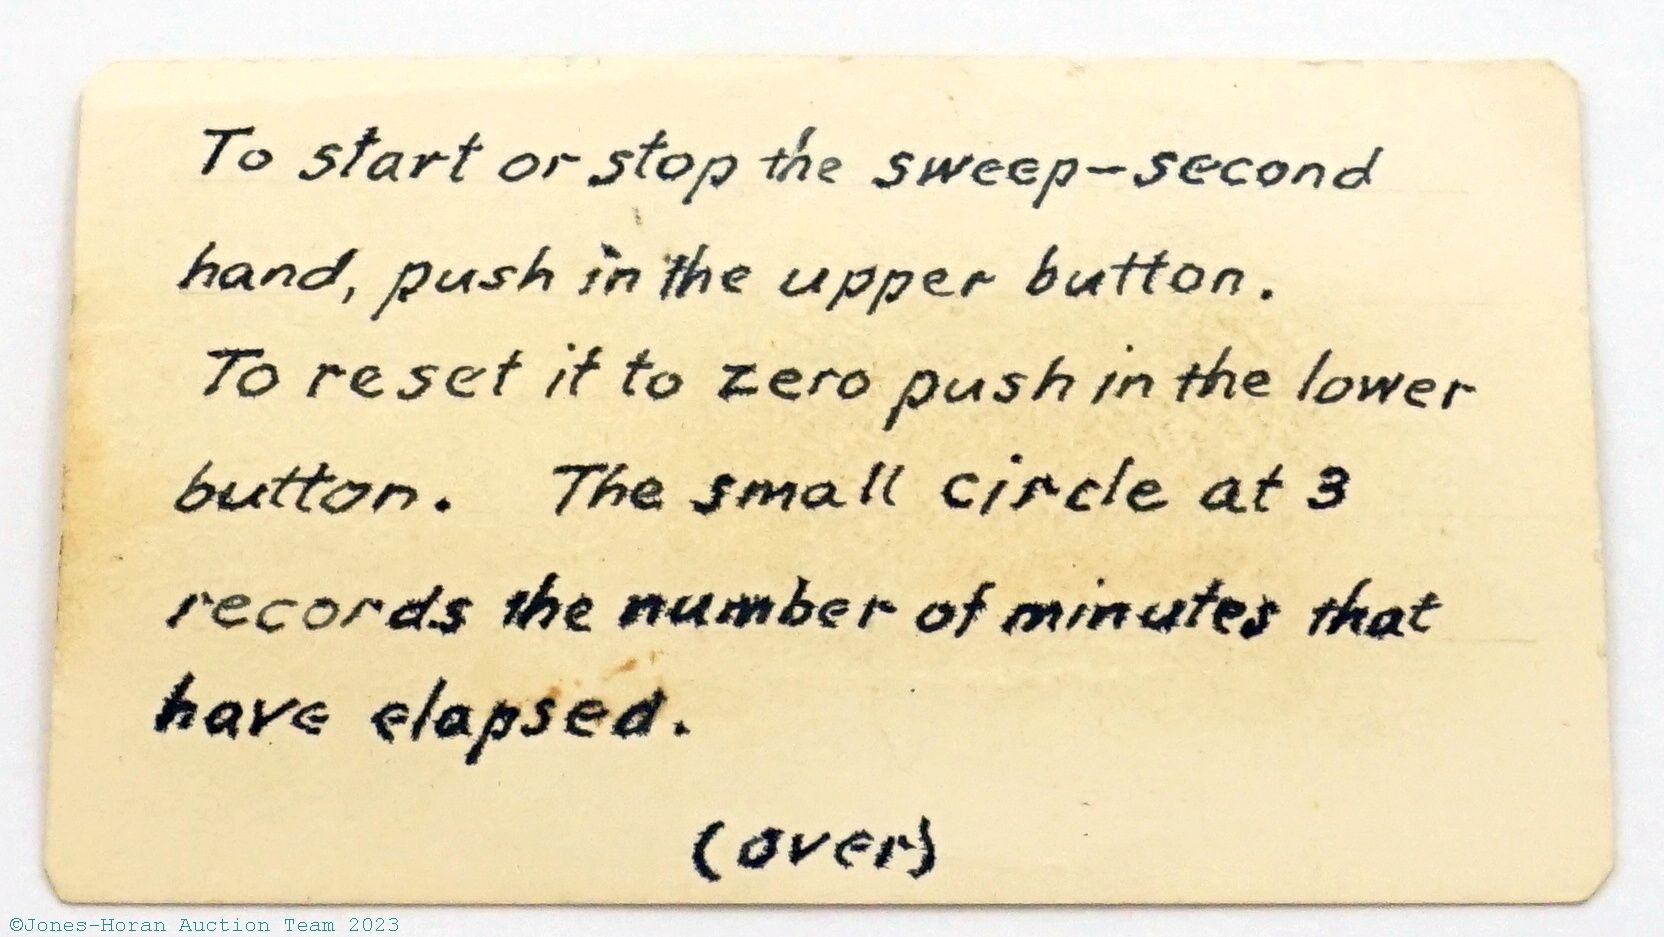 To start or stop the sweep-second
hand, push in the upper button.
To reset it to zero push in the lower
button. The small circle at 3
records the number of minutes that
have elapsed.
(over)
©Jones-Horan Auction Team 2023